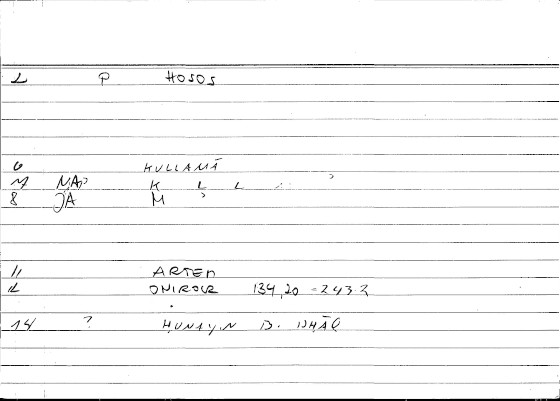 1 P HOSOS
6 KULLAMĀ
7 NAP K L L
8 JA M
11 ARTEM
12 ONIROCR 134,20 - 243.2
14 ? ḤUNAYN B. ISḤĀQ